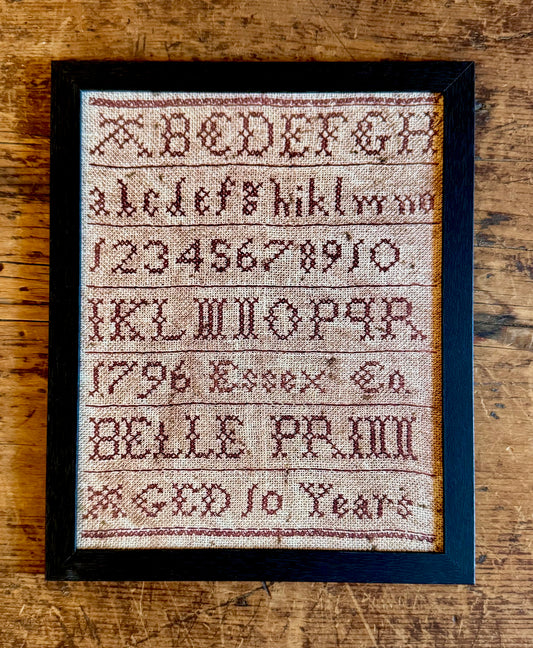 ABCDEFGH
abcdefg hiklmno
12345678910.
IKLMNOPQR
1796 Essex Co.
BELLE
AGED 10 Years